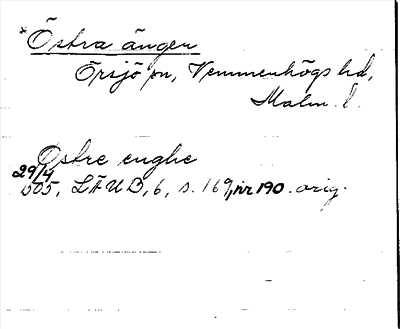 * Östra ängen
Örsjö sn, Vemmenhögs hd,
Malm. l.
Östre enghe
29/4
1505, LÄUB, 6, s. 169, nr 190. orig.